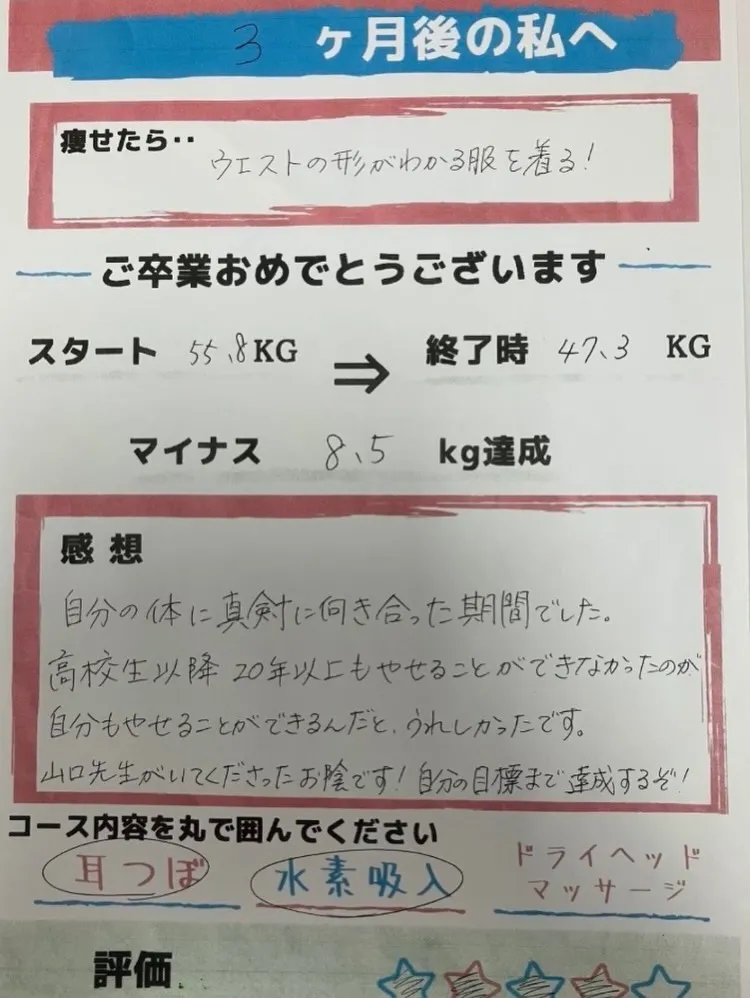 3 ヶ月後の私へ
痩せたら・・
ウエストの形がわかる服を着る!
ご卒業おめでとうございます
スタート 55.8KG ⇒ 終了時 47.3 KG
マイナス 8.5 kg達成
感想
自分の体に真剣に向き合った期間でした。
高校生以降 20年以上もやせることができなかったのが
自分もやせることができるんだと、うれしかったです。
山口先生がいてくださったお陰です!自分の目標まで達成するぞ!
コース内容を丸で囲んでください
耳つぼ 水素吸入 ドライヘッド
マッサージ
評価